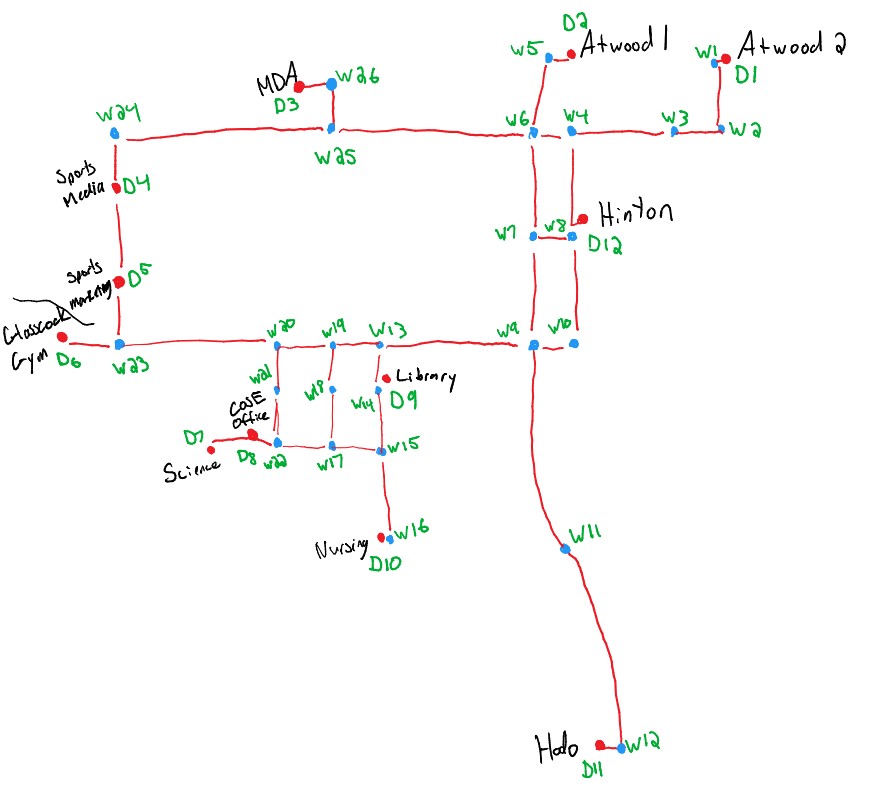 D2
W5
Atwood 1
W1
Atwood 2
D1
MDA
W26
D3
W24
W25
W6
W4
W3
W2
Sports
Media
D4
Hinton
W7
W8
D12
Sports
Marketing
D5
Glasscock
Gym
D6
W23
W20
W19
W13
W9
W10
W21
W18
Library
W14
D9
COSE
Office
D7
D8
W22
W17
W15
Science
Nursing
W16
D10
W11
Hodo
W12
D11